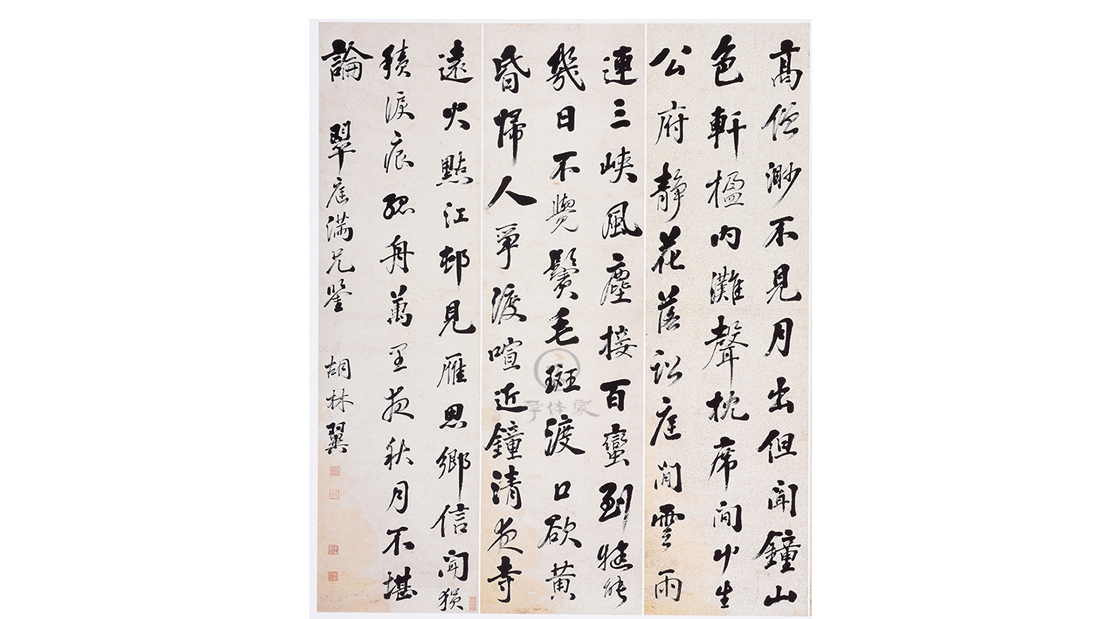 高僧渺不見月出但聞鐘山
色軒楹內灘聲枕席間艸生
公府靜花落訟庭閒雲雨
連三峽風塵接百蠻到來能
幾日不覺鬢毛斑渡口欲黃
昏歸人爭渡喧近鐘清夜寺
遠火點江邨見雁思鄉信聞猿
積淚痕孤舟萬里夜秋月不堪
論 翠滿兄鑒 胡林翼
字体家